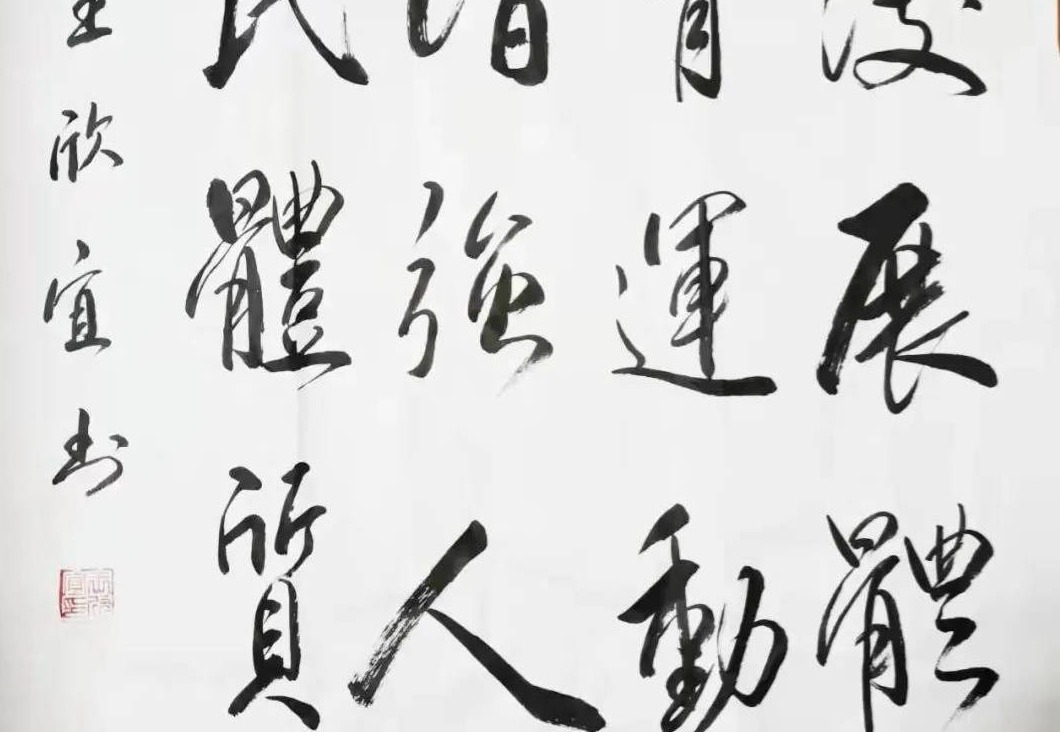 發展體
育運動
增強人
民體質
王欣宜書